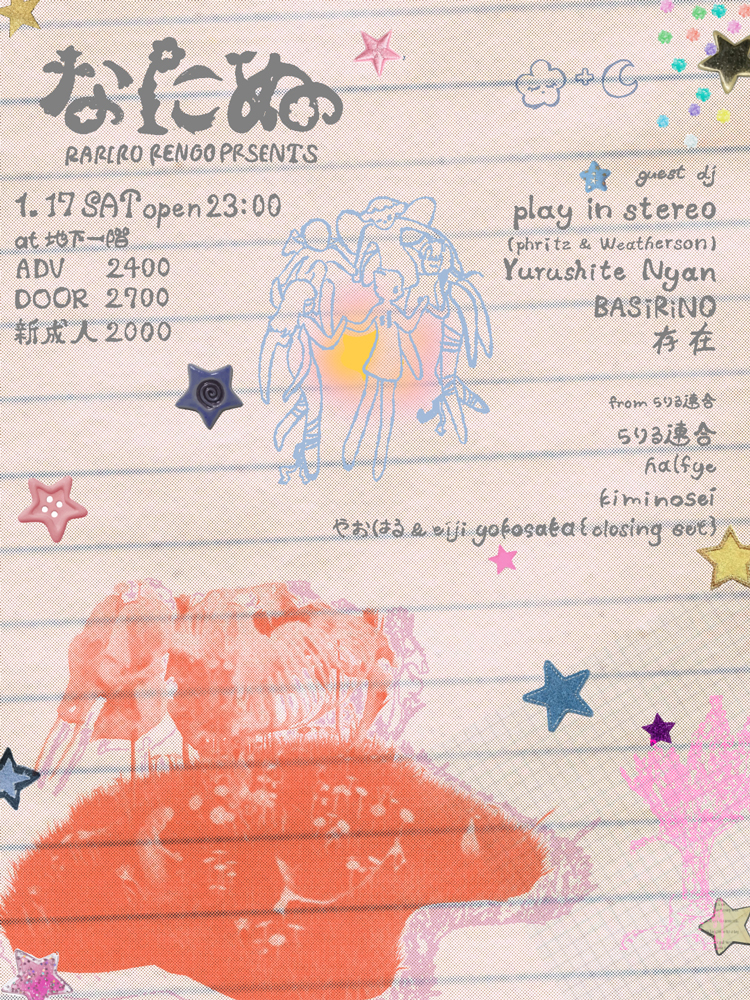 なにぬの
RARIRO RENGO PRSENTS
1.17 SAT open 23:00
at 地下一階
ADV 2400
DOOR 2700
新成人 2000
guest dj
play in stereo
(phritz & Weatherson)
Yurushite Nyan
BASiRiNO
存在
from らりる連合
らりる連合
halfye
kiminosei
やおはる & eiji yokosaka {closing set}